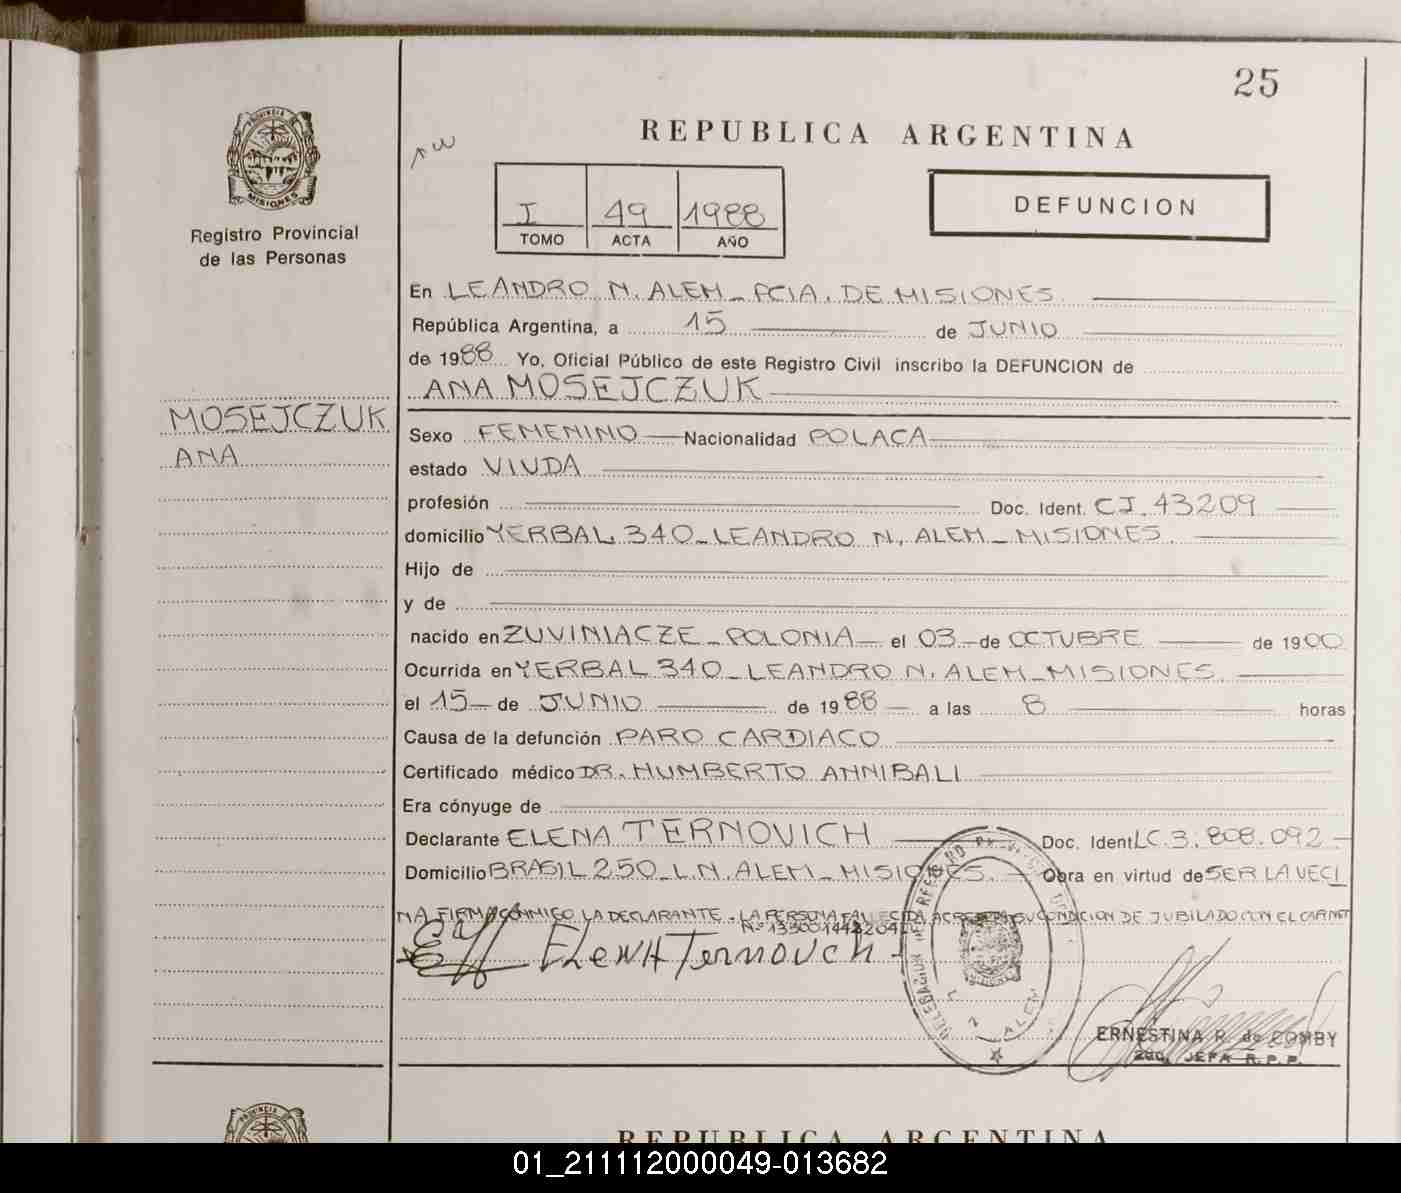 25
PROVINCIA DE
MISIONES
Registro Provincial
de las Personas
REPUBLICA ARGENTINA
I 49 1988
TOMO ACTA AÑO
DEFUNCION
En LEANDRO N. ALEM - PCIA. DE MISIONES
República Argentina, a 15 de JUNIO
de 1988 Yo, Oficial Público de este Registro Civil inscribo la DEFUNCION de
ANA MOSEJCZUK
MOSEJCZUK
ANA
Sexo FEMENINO Nacionalidad POLACA
estado VIUDA
profesión Doc. Ident. CI. 43209
domicilio YERBAL 340 - LEANDRO N. ALEM - MISIONES.
Hijo de
y de
nacido en ZUVINIACZE - POLONIA el 03 de OCTUBRE de 1900
Ocurrida en YERBAL 340 - LEANDRO N. ALEM - MISIONES.
el 15 de JUNIO de 1988 a las 8 horas
Causa de la defunción PARO CARDIACO
Certificado médico DR. HUMBERTO ANNIBALI
Era cónyuge de
Declarante ELENA TERNOVICH Doc. Ident LC 3.808.092
Domicilio BRASIL 250 - L.N. ALEM - MISIONES. Obra en virtud de SER LA VECI
NA FIRMA CONMIGO LA DECLARANTE - LA PERSONA FALLECIDA ACREDITA SU CONDICION DE JUBILADO CON EL CARNET
Elena Ternovich
L. N. ALEM
ERNESTINA R. de COMBY
2do. JEFA R.P.P.
REPUBLICA ARGENTINA
01_211112000049-013682